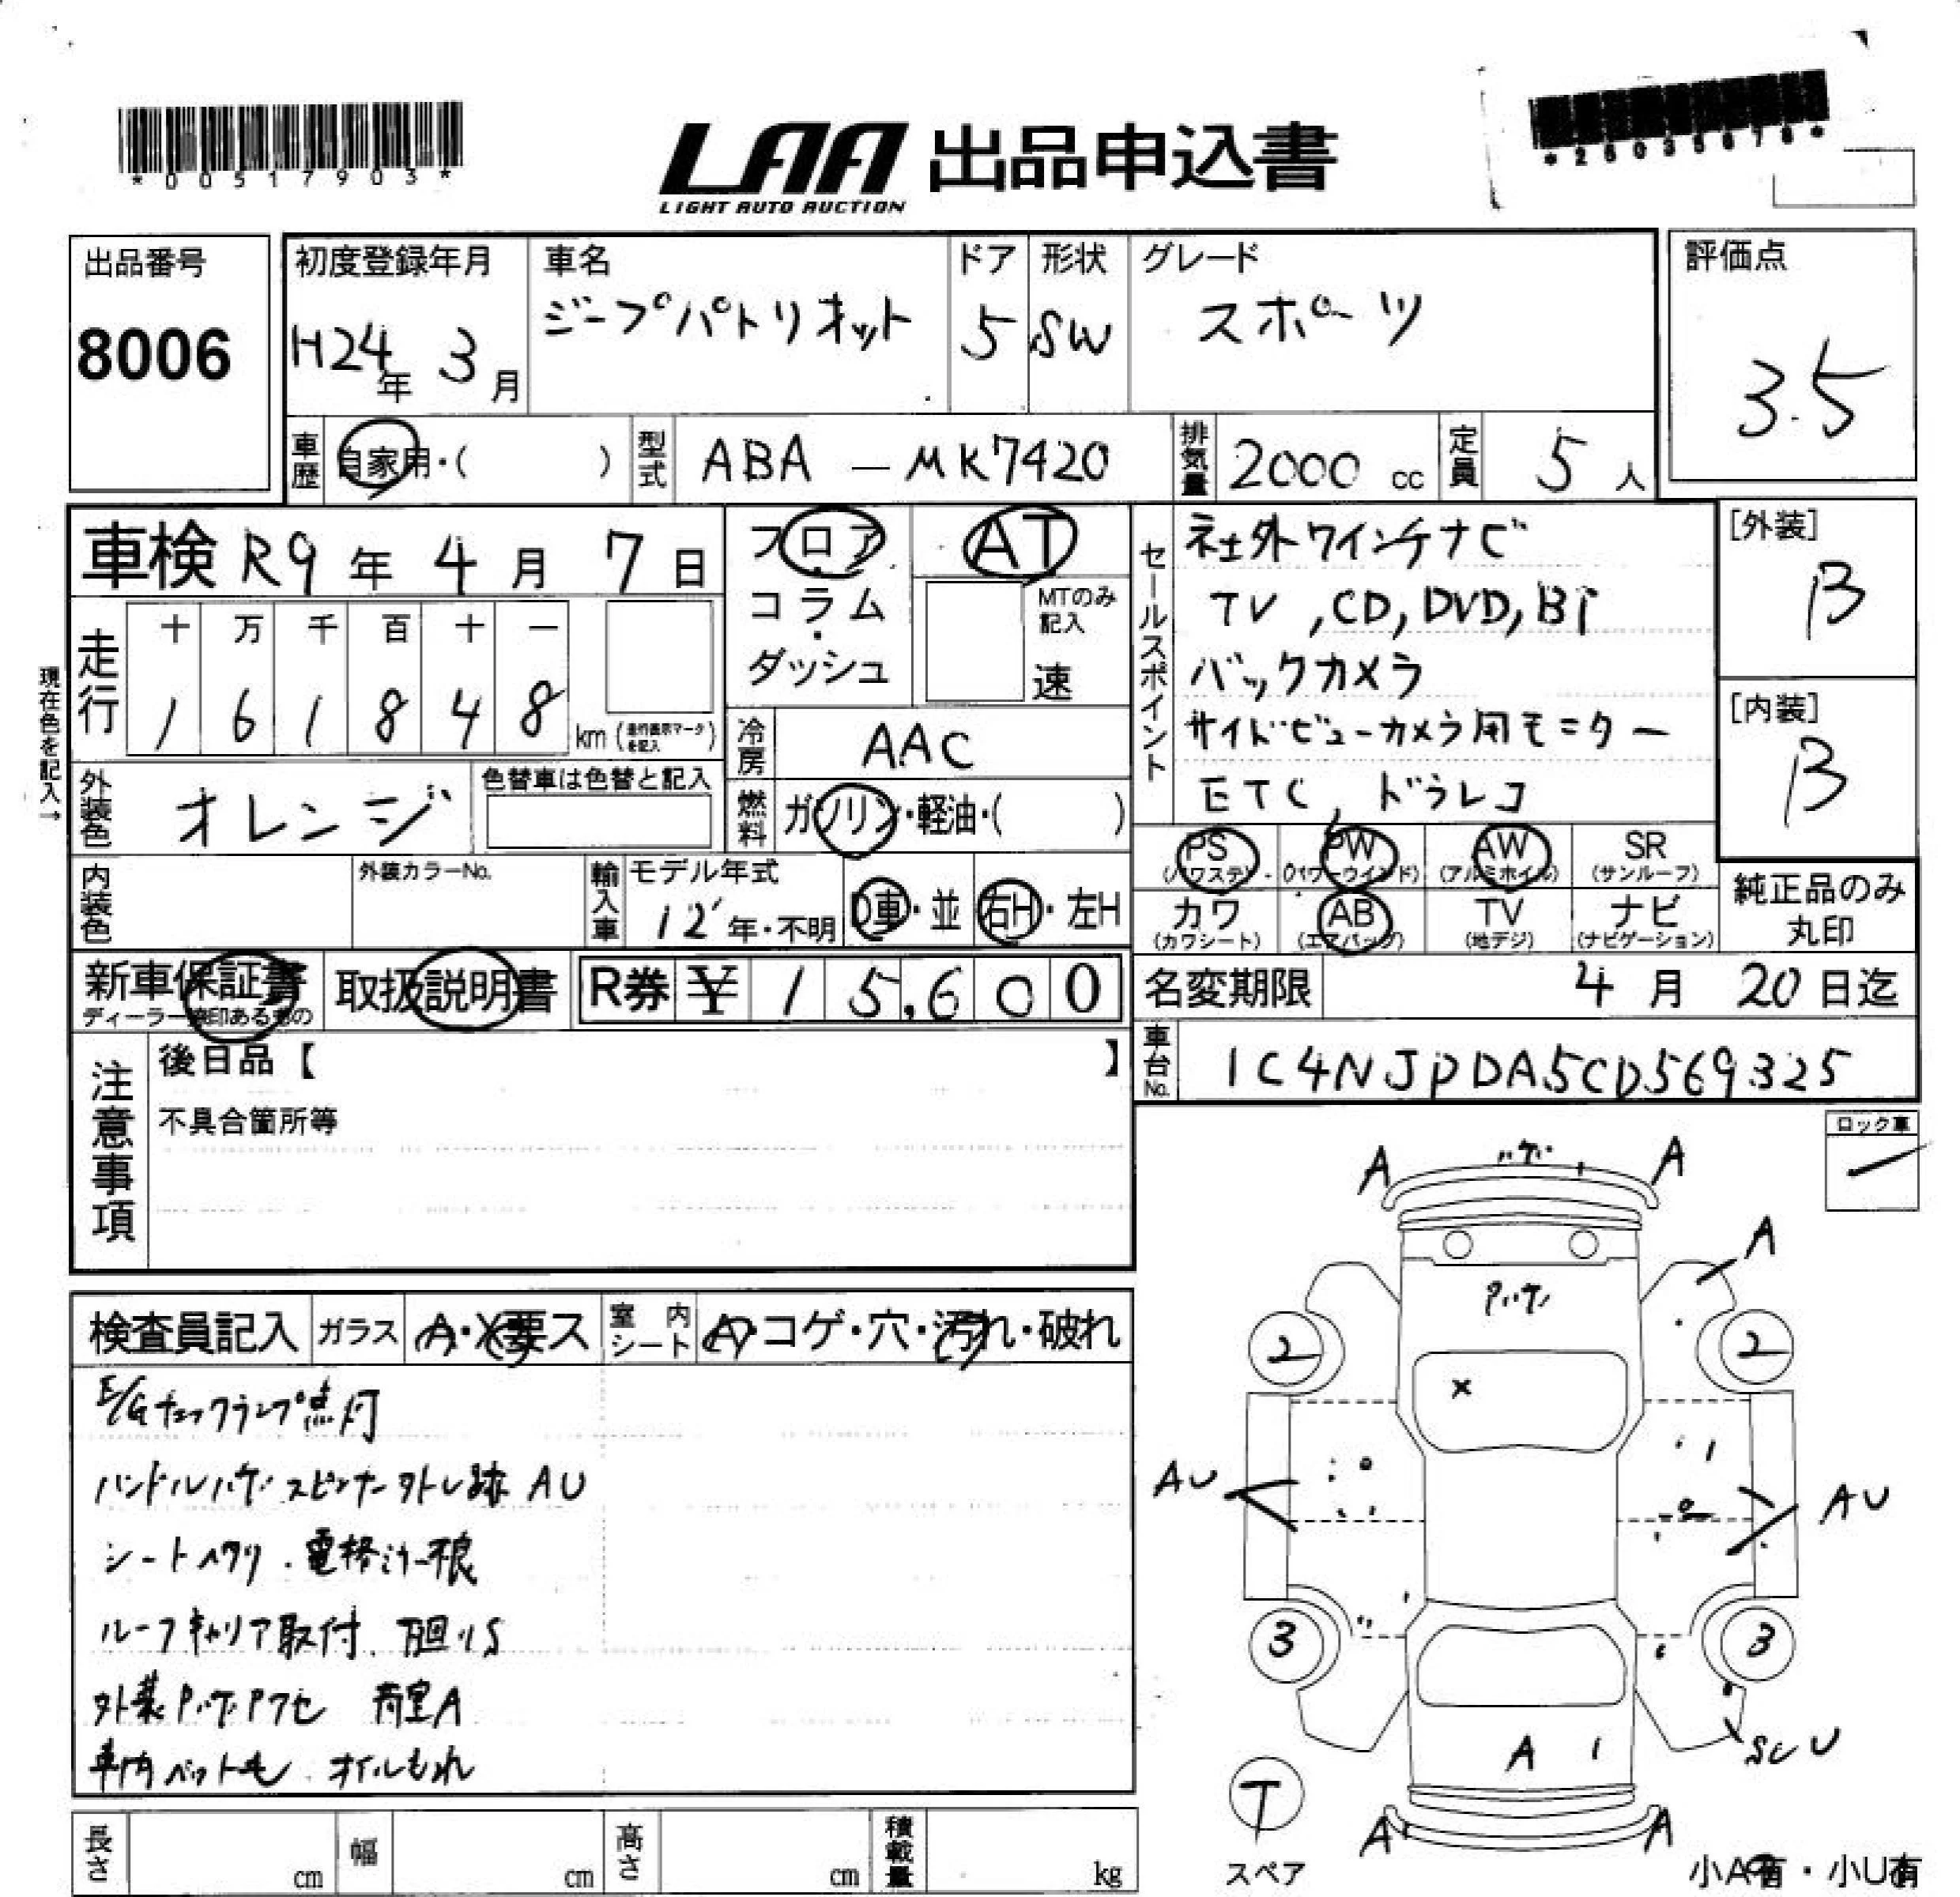 *00517903*
LAA 出品申込書
LIGHT AUTO AUCTION
*26035678*
出品番号
8006
初度登録年月
H24年 3月
車名
ジープパトリオット
ドア
5
形状
SW
グレード
スポーツ
評価点
3.5
車歴
自家用・( )
型式
ABA - MK7420
排気量
2000 cc
定員
5 人
車検 R9年 4月 7日
フロア
・
コラム
・
ダッシュ
AT
MTのみ
記入
速
セールスポイント
社外ワインチナビ
TV , CD, DVD, BT
バックカメラ
サイドビューカメラ用モニター
ETC, ドラレコ
[外装]
B
[内装]
B
現在色を記入→
走行
十 万 千 百 十 一
1 6 1 8 4 8 km (走行表示マークを記入)
冷房
AAC
外装色
オレンジ
色替車は色替と記入
燃料
ガソリン・軽油・( )
内装色
外装カラーNo.
輸入車
モデル年式
12' 年・不明
D車・並
右H・左H
PS
(パワステ)
PW
(パワーウインド)
AW
(アルミホイル)
SR
(サンルーフ)
カワ
(カワシート)
AB
(エアバッグ)
TV
(地デジ)
ナビ
(ナビゲーション)
純正品のみ
丸印
新車保証書
ディーラー捺印あるもの
取扱説明書
R券 ¥ 15,600
名変期限 4月 20日迄
車台No.
1C4NJPDA5CD569325
注意事項
後日品【 】
不具合箇所等
ロック車
検査員記入
ガラス
A・X・要ス
室内シート
A・コゲ・穴・汚れ・破れ
E/Gチェックランプ点灯
ハンドルハゲ スピンナー外し跡 AU
シートヘタリ・電格ミラー不良
ルーフキャリア取付 下回りS
外装ハゲ 荷室A
車内ペット毛 オイルもれ
A ハゲ A
A
2 2
X
AU AU
3 3
A SCU
T
スペア
A A
小A有・小U有
長さ cm
幅 cm
高さ cm
積載量 kg